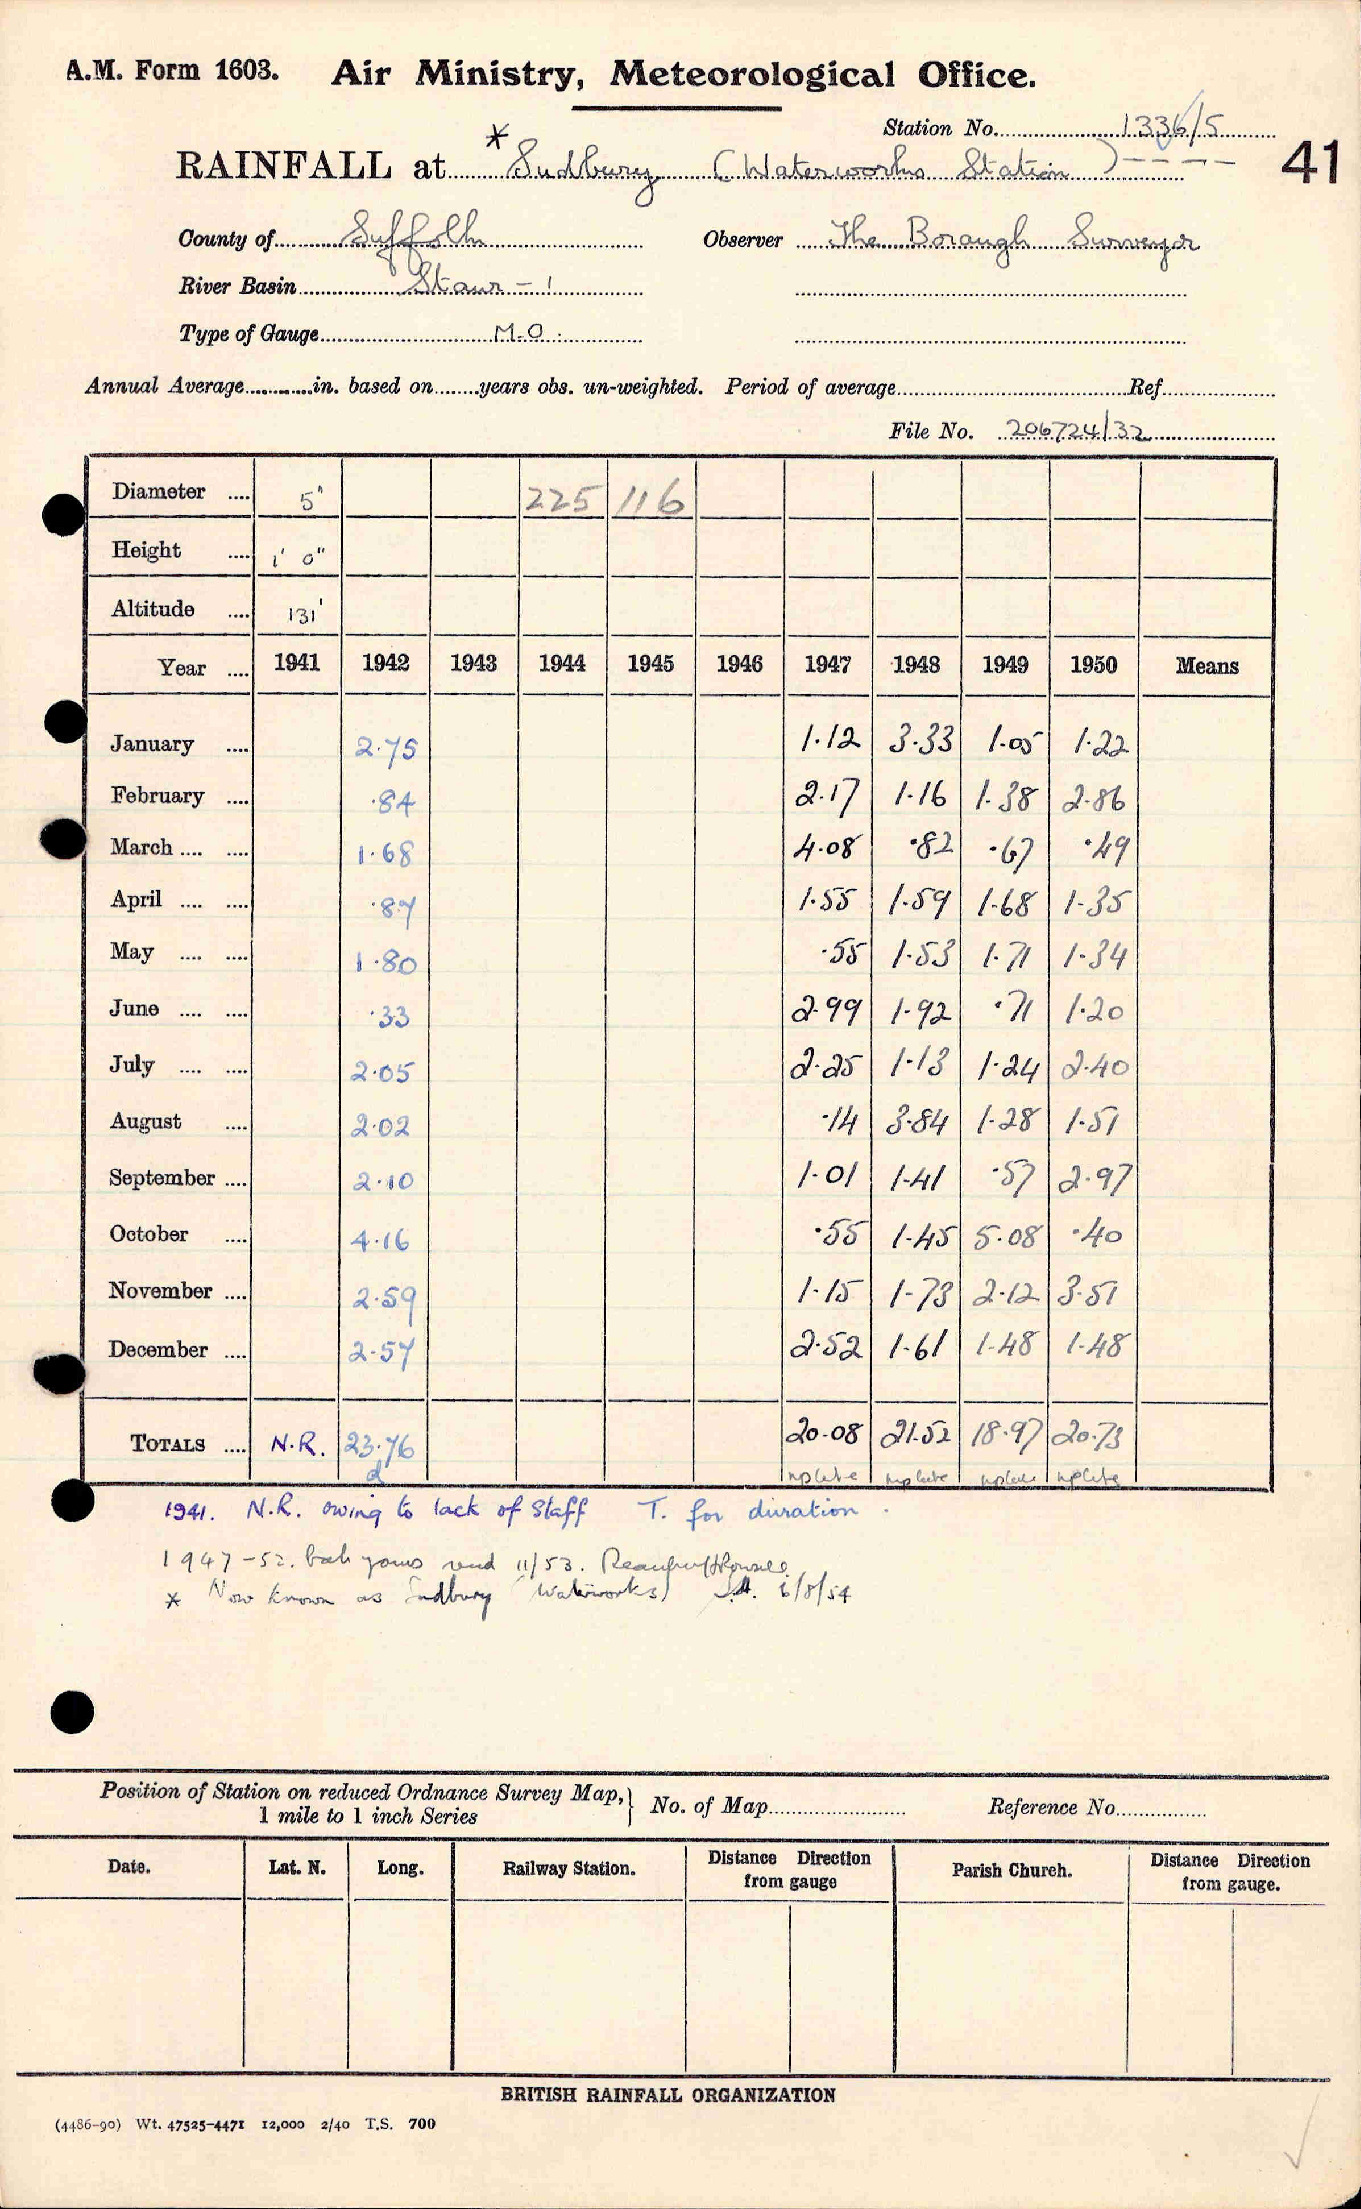 A.M. Form 1603. Air Ministry, Meteorological Office.
Station No. 1336/5
* RAINFALL at Sudbury (Waterworks Station) 41
County of Suffolk Observer The Borough Surveyor
River Basin Stour - 1
Type of Gauge M.O.
Annual Average in. based on years obs. un-weighted. Period of average Ref
File No. 206724/32
Diameter .... 5" 225 116
Height .... 1' 0"
Altitude .... 131'
Year .... 1941 1942 1943 1944 1945 1946 1947 1948 1949 1950 Means
January .... 2.75 1.12 3.33 1.05 1.22
February .... .84 2.17 1.16 1.38 2.86
March .... .... 1.68 4.08 .82 .67 .49
April .... .... .87 1.55 1.59 1.68 1.35
May .... .... 1.80 .55 1.53 1.71 1.34
June .... .... .33 2.99 1.92 .71 1.20
July .... .... 2.05 2.25 1.13 1.24 2.40
August .... 2.02 .14 3.84 1.28 1.51
September .... 2.10 1.01 1.41 .57 2.97
October .... 4.16 .55 1.45 5.08 .40
November .... 2.59 1.15 1.73 2.12 3.51
December .... 2.57 2.52 1.61 1.48 1.48
TOTALS .... N.R. 23.76 20.08 21.52 18.97 20.73
d
1941. N.R. owing to lack of staff T. for duration.
1947-52. 11/53.
* Now known as Sudbury (Waterworks) 6/8/54
Position of Station on reduced Ordnance Survey Map, } No. of Map Reference No.
1 mile to 1 inch Series
Date. Lat. N. Long. Railway Station. Distance Direction from gauge Parish Church. Distance Direction from gauge.
BRITISH RAINFALL ORGANIZATION
(4486-90) Wt. 47525-4471 12,000 2/40 T.S. 700